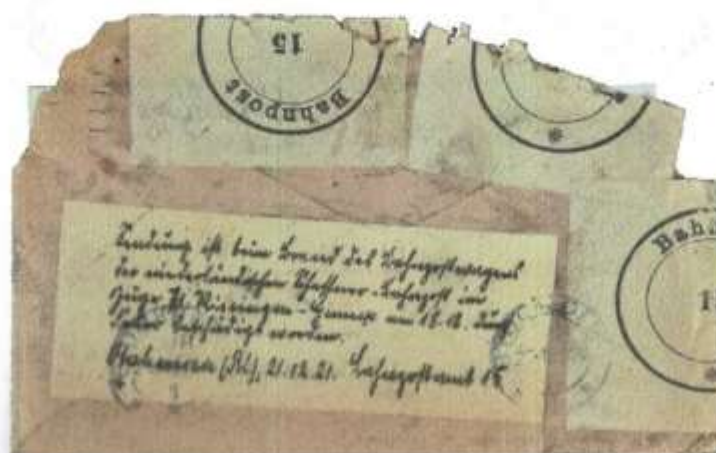 15
Bahnpost
Sendung ist beim Brand des Bahnpostwagens
der niederländischen Schaffner-Bahnpost im
Zuge Vlissingen - am 18.12. durch
Feuer beschädigt worden.
21.12.21. Bahnpostamt 15